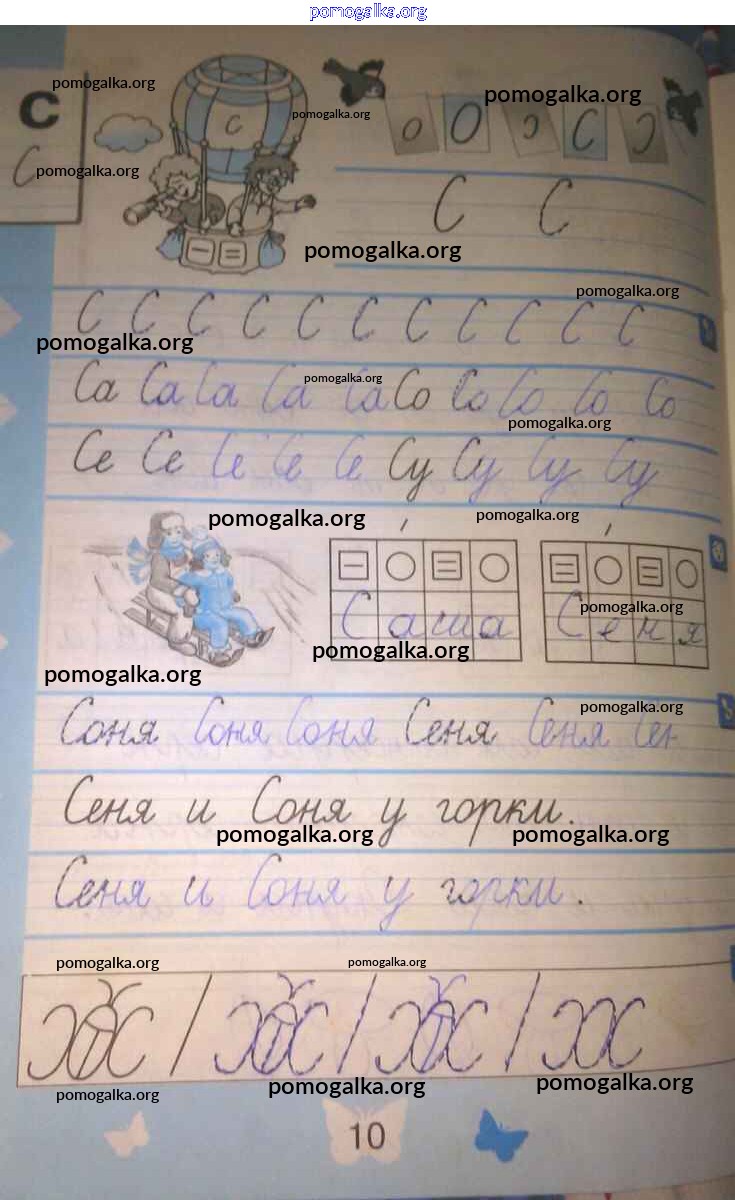 pomogalka.org
pomogalka.org
С
с
pomogalka.org
pomogalka.org
С
pomogalka.org
о О с С с
С С
pomogalka.org
pomogalka.org
С С С С С С С С С С С
pomogalka.org
pomogalka.org
Са Са Са Са Са Со Со Со Со Со
pomogalka.org
Се Се Се Се Се Су Су Су Су
pomogalka.org
pomogalka.org
Саша Сеня
pomogalka.org
pomogalka.org
pomogalka.org
pomogalka.org
Соня Соня Соня Сеня Сеня Сен
Сеня и Соня у горки.
pomogalka.org
pomogalka.org
Сеня и Соня у горки.
pomogalka.org
pomogalka.org
pomogalka.org
pomogalka.org
pomogalka.org
10